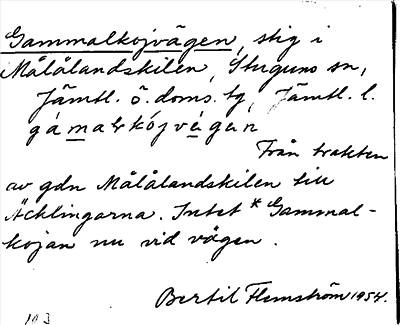 Gammalkojvägen, stig i
Målålandskilen, Stuguns sn,
Jämtl. ö. doms. tg, Jämtl. l.
gámalkójvägen
Från trakten
av gdn Målålandskilen till
Äcklingarna. Intet * Gammal-
kojan nu vid vägen.
Bertil Flemström 1954.
193